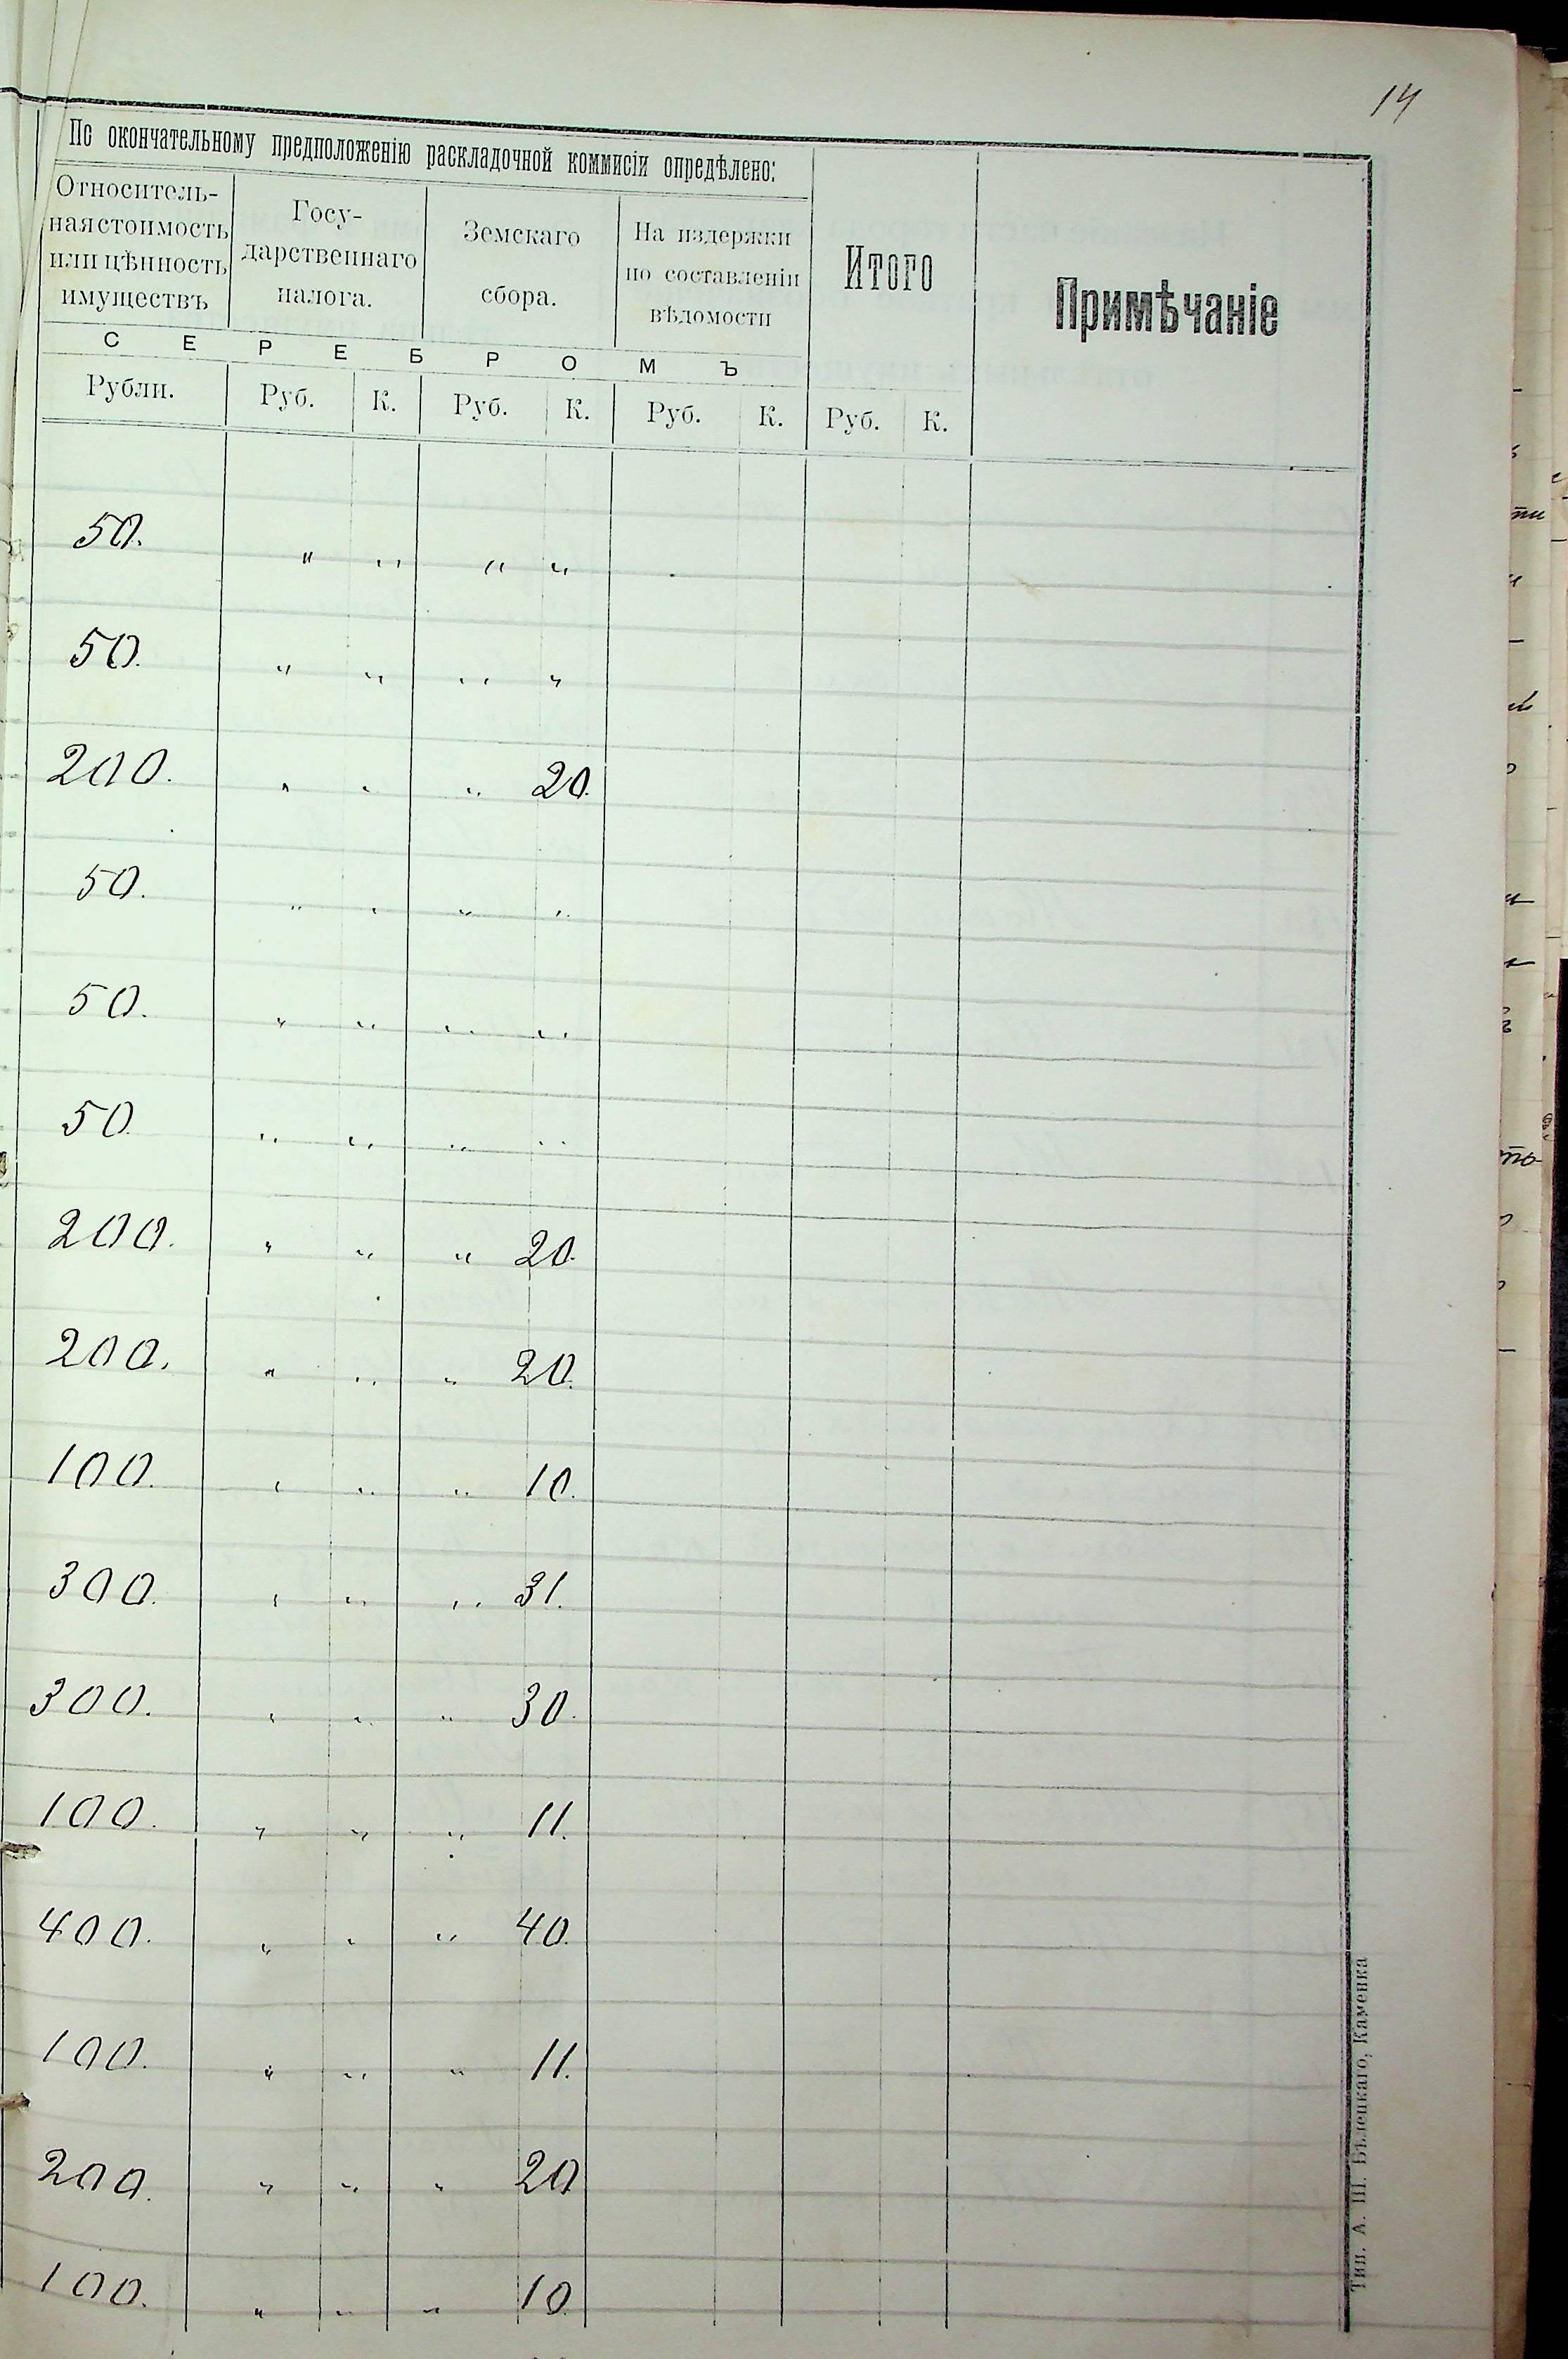 14
По окончательному предположенію раскладочной коммисіи опредѣлено:
Относитель-
ная стоимость
или цѣнность
имуществъ
Госу-
дарственнаго
налога.
Земскаго
сбора.
На издержки
по составленіи
вѣдомости
Итого
Примѣчаніе
СЕРЕБРОМЪ
Рубли. Руб. К. Руб. К. Руб. К. Руб. К.
50. " " " "
50. " " " "
200. " " " 20.
50. " " " "
50. " " " "
50. " " " "
200. " " " 20.
200. " " " 20.
100. " " " 10.
300. " " " 31.
300. " " " 30.
100. " " " 11.
400. " " " 40.
100. " " " 11.
200. " " " 20
100. " " " 10.
Тип. А. Ш. Бѣлецкаго, Каменка